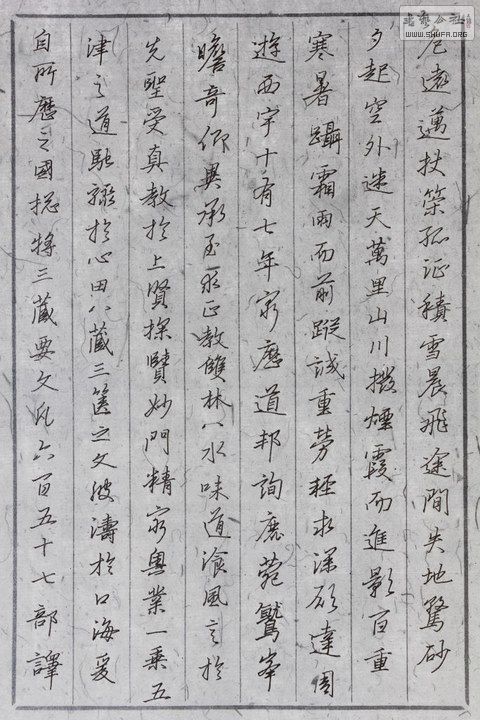 危遠邁杖策孤征積雪晨飛途間失地驚砂
夕起空外迷天萬里山川撥煙霞而進影百重
寒暑躡霜雨而前蹤誠重勞輕求深願達周
遊西宇十有七年窮歷道邦詢
鹿菀鷲峯
瞻奇仰異承至言
於
先聖受真教於上賢探賾妙門精窮奧業一乘五
津之道馳驟於心田八藏三篋之文波濤於口海爰
自所歷之國捴將三藏要文凡六百五十七部譯
書藝公社
WWW.SHUFA.ORG